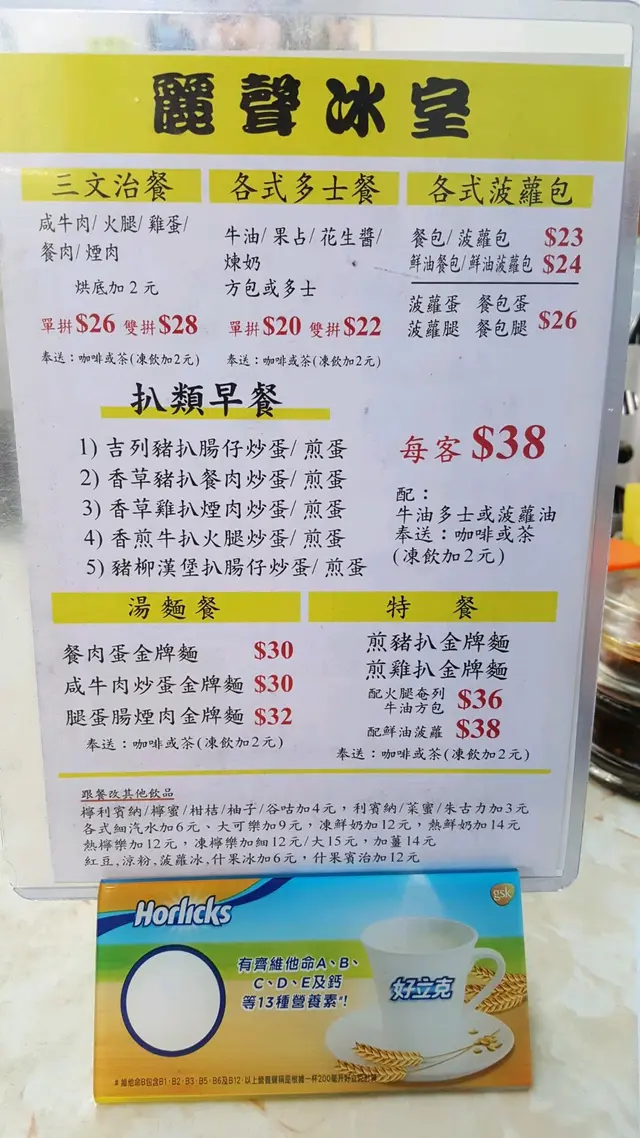 麗聲冰室
三文治餐
咸牛肉/火腿/雞蛋/
餐肉/煙肉
烘底加2元
單拼$26 雙拼$28
奉送：咖啡或茶(凍飲加2元)
各式多士餐
牛油/果占/花生醬/
煉奶
方包或多士
單拼$20 雙拼$22
奉送：咖啡或茶(凍飲加2元)
各式菠蘿包
餐包/菠蘿包 $23
鮮油餐包/鮮油菠蘿包 $24
菠蘿蛋 餐包蛋
菠蘿腿 餐包腿 $26
扒類早餐
1) 吉列豬扒腸仔炒蛋/煎蛋
2) 香草豬扒餐肉炒蛋/煎蛋
3) 香草雞扒煙肉炒蛋/煎蛋
4) 香煎牛扒火腿炒蛋/煎蛋
5) 豬柳漢堡扒腸仔炒蛋/煎蛋
每客 $38
配：
牛油多士或菠蘿油
奉送：咖啡或茶
(凍飲加2元)
湯麵餐
餐肉蛋金牌麵 $30
咸牛肉炒蛋金牌麵 $30
腿蛋腸煙肉金牌麵 $32
奉送：咖啡或茶(凍飲加2元)
特餐
煎豬扒金牌麵
煎雞扒金牌麵
配火腿奄列
牛油方包 $36
配鮮油菠蘿 $38
奉送：咖啡或茶(凍飲加2元)
跟餐改其他飲品
檸利賓納/檸蜜/柑桔/柚子/谷咕加4元，利賓納/菜蜜/朱古力加3元
各式細汽水加6元、大可樂加9元，凍鮮奶加12元，熱鮮奶加14元
熱檸樂加12元，凍檸樂加細12元/大15元，加薑14元
紅豆,涼粉,菠蘿冰,什果冰加6元，什果賓治加12元
Horlicks
gsk
有齊維他命A、B、
C、D、E及鈣
等13種營養素*!
好立克
*維他命B包含B1、B2、B3、B5、B6及B12，以上營養聲稱是根據一杯200毫升好立克計算